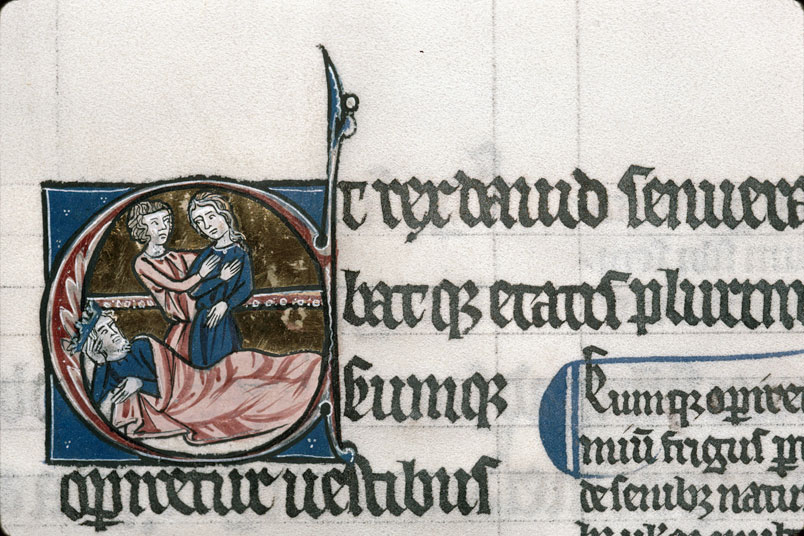 Et rex dauid senuera
batqꝫ etatis plurim
Cumqꝫ
opiretur uestibus
Cumqꝫ opiret
miū frigus
de senibꝫ natu